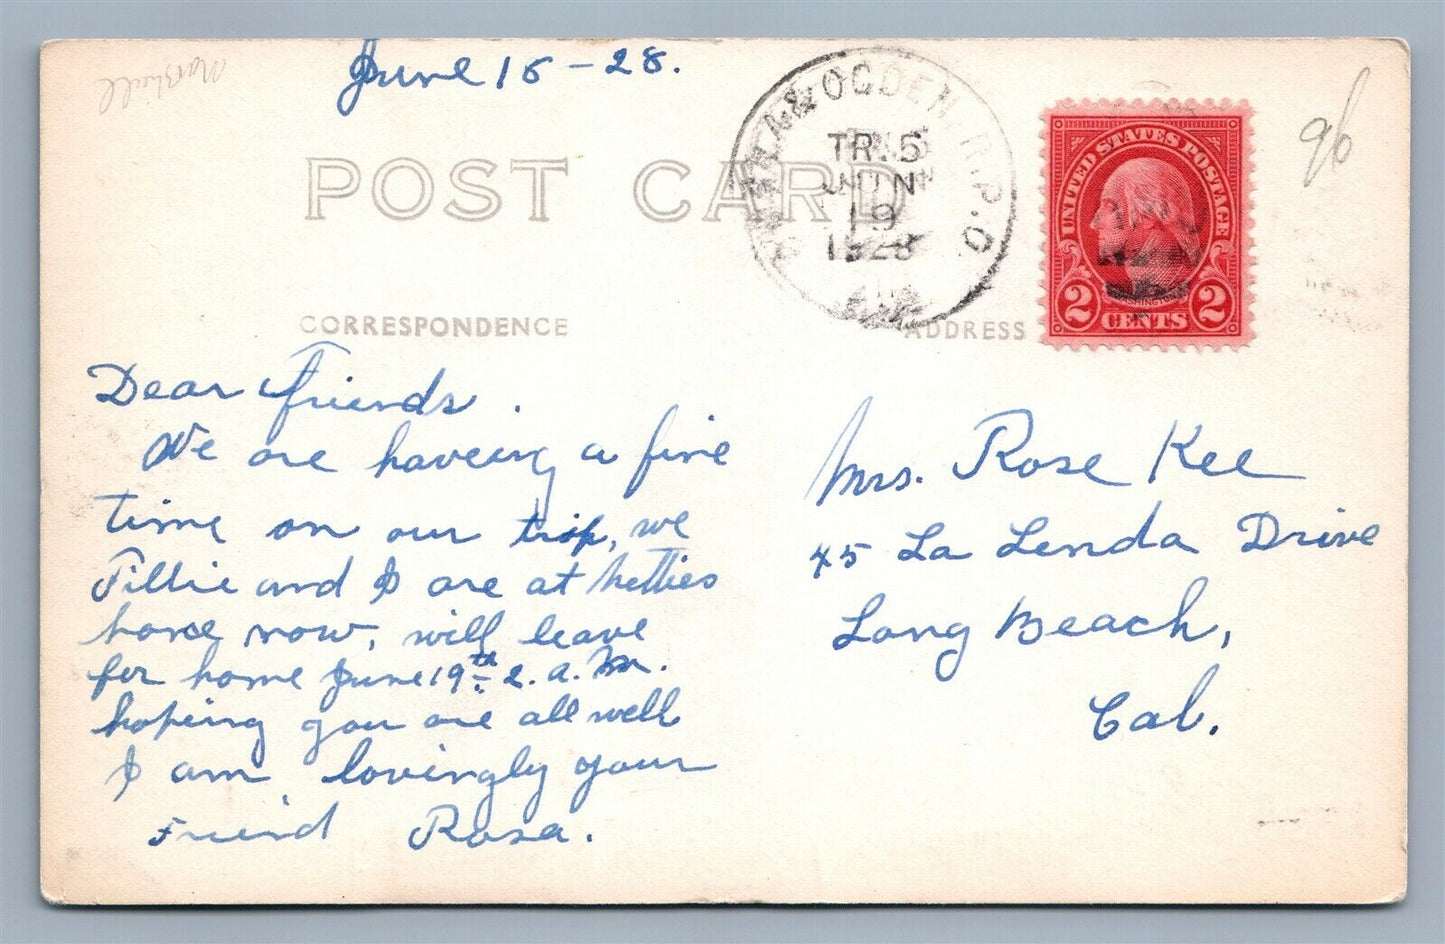 Marshall
June 18 - 28.
96
POST CARD
& OGDEN R.P.O.
TR. 5
JUN
19
1928
UNITED STATES POSTAGE
WASHINGTON
2 CENTS 2
CORRESPONDENCE
ADDRESS
Dear Friends.
We are haveing a fine
time on our trip, we
Tillie and I are at Netties
home now, will leave
for home June 19th 2. a. m.
hoping you are all well
I am lovingly your
Friend Rosa.
Mrs. Rose Kee
45 La Lenda Drive
Long Beach,
Cal.